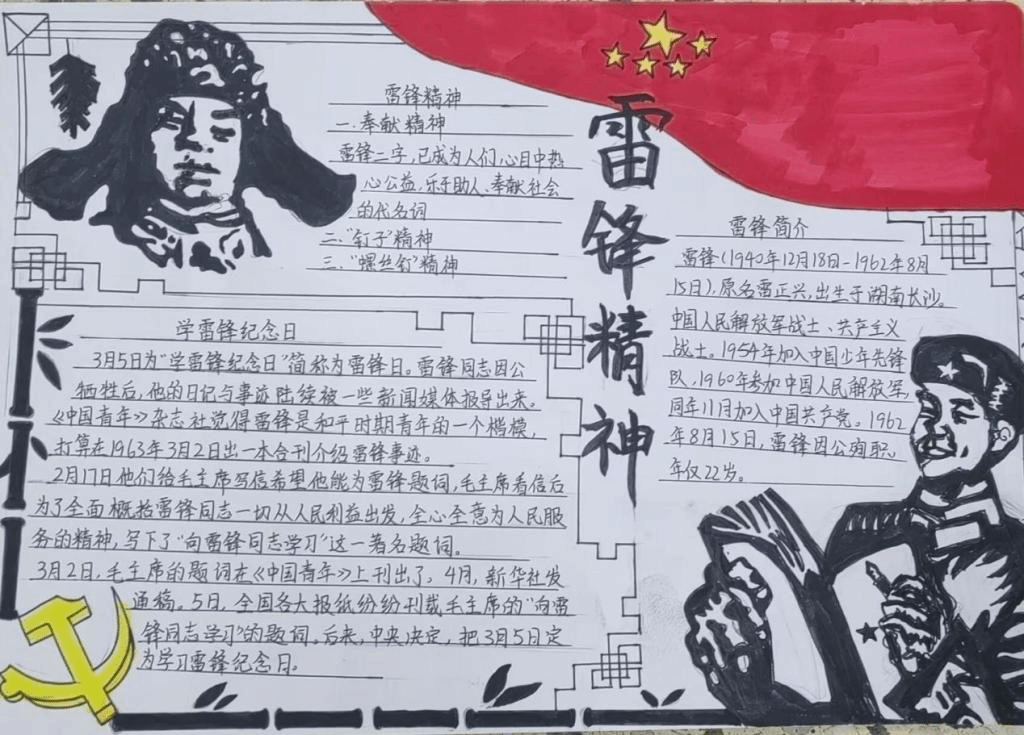 雷锋精神
雷锋精神
一.奉献精神
雷锋二字,已成为人们心目中热
心公益,乐于助人、奉献社会
的代名词
二."钉子"精神
三."螺丝钉"精神
学雷锋纪念日
3月5日为"学雷锋纪念日"简称为雷锋日。雷锋同志因公
牺牲后,他的日记与事迹陆续被一些新闻媒体报导出来。
《中国青年》杂志社觉得雷锋是和平时期青年的一个楷模,
打算在1963年3月2日出一本合刊介绍雷锋事迹。
2月17日他们给毛主席写信希望他能为雷锋题词,毛主席看信后
为了全面概括雷锋同志一切从人民利益出发,全心全意为人民服
务的精神,写下了"向雷锋同志学习"这一著名题词。
3月2日,毛主席的题词在《中国青年》上刊出了。4月,新华社发
通稿。5日,全国各大报纸纷纷刊载毛主席的"向雷
锋同志学习"的题词。后来,中央决定,把3月5日定
为学习雷锋纪念日。
雷锋简介
雷锋(1940年12月18日-1962年8月
15日),原名雷正兴,出生于湖南长沙。
中国人民解放军战士、共产主义
战士。1954年加入中国少年先锋
队,1960年参加中国人民解放军,
同年11月加入中国共产党。1962
年8月15日,雷锋因公殉职,
年仅22岁。